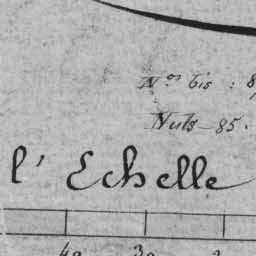 Nos bis : 8
Nuls - 85.
l'Echelle
40 30 2